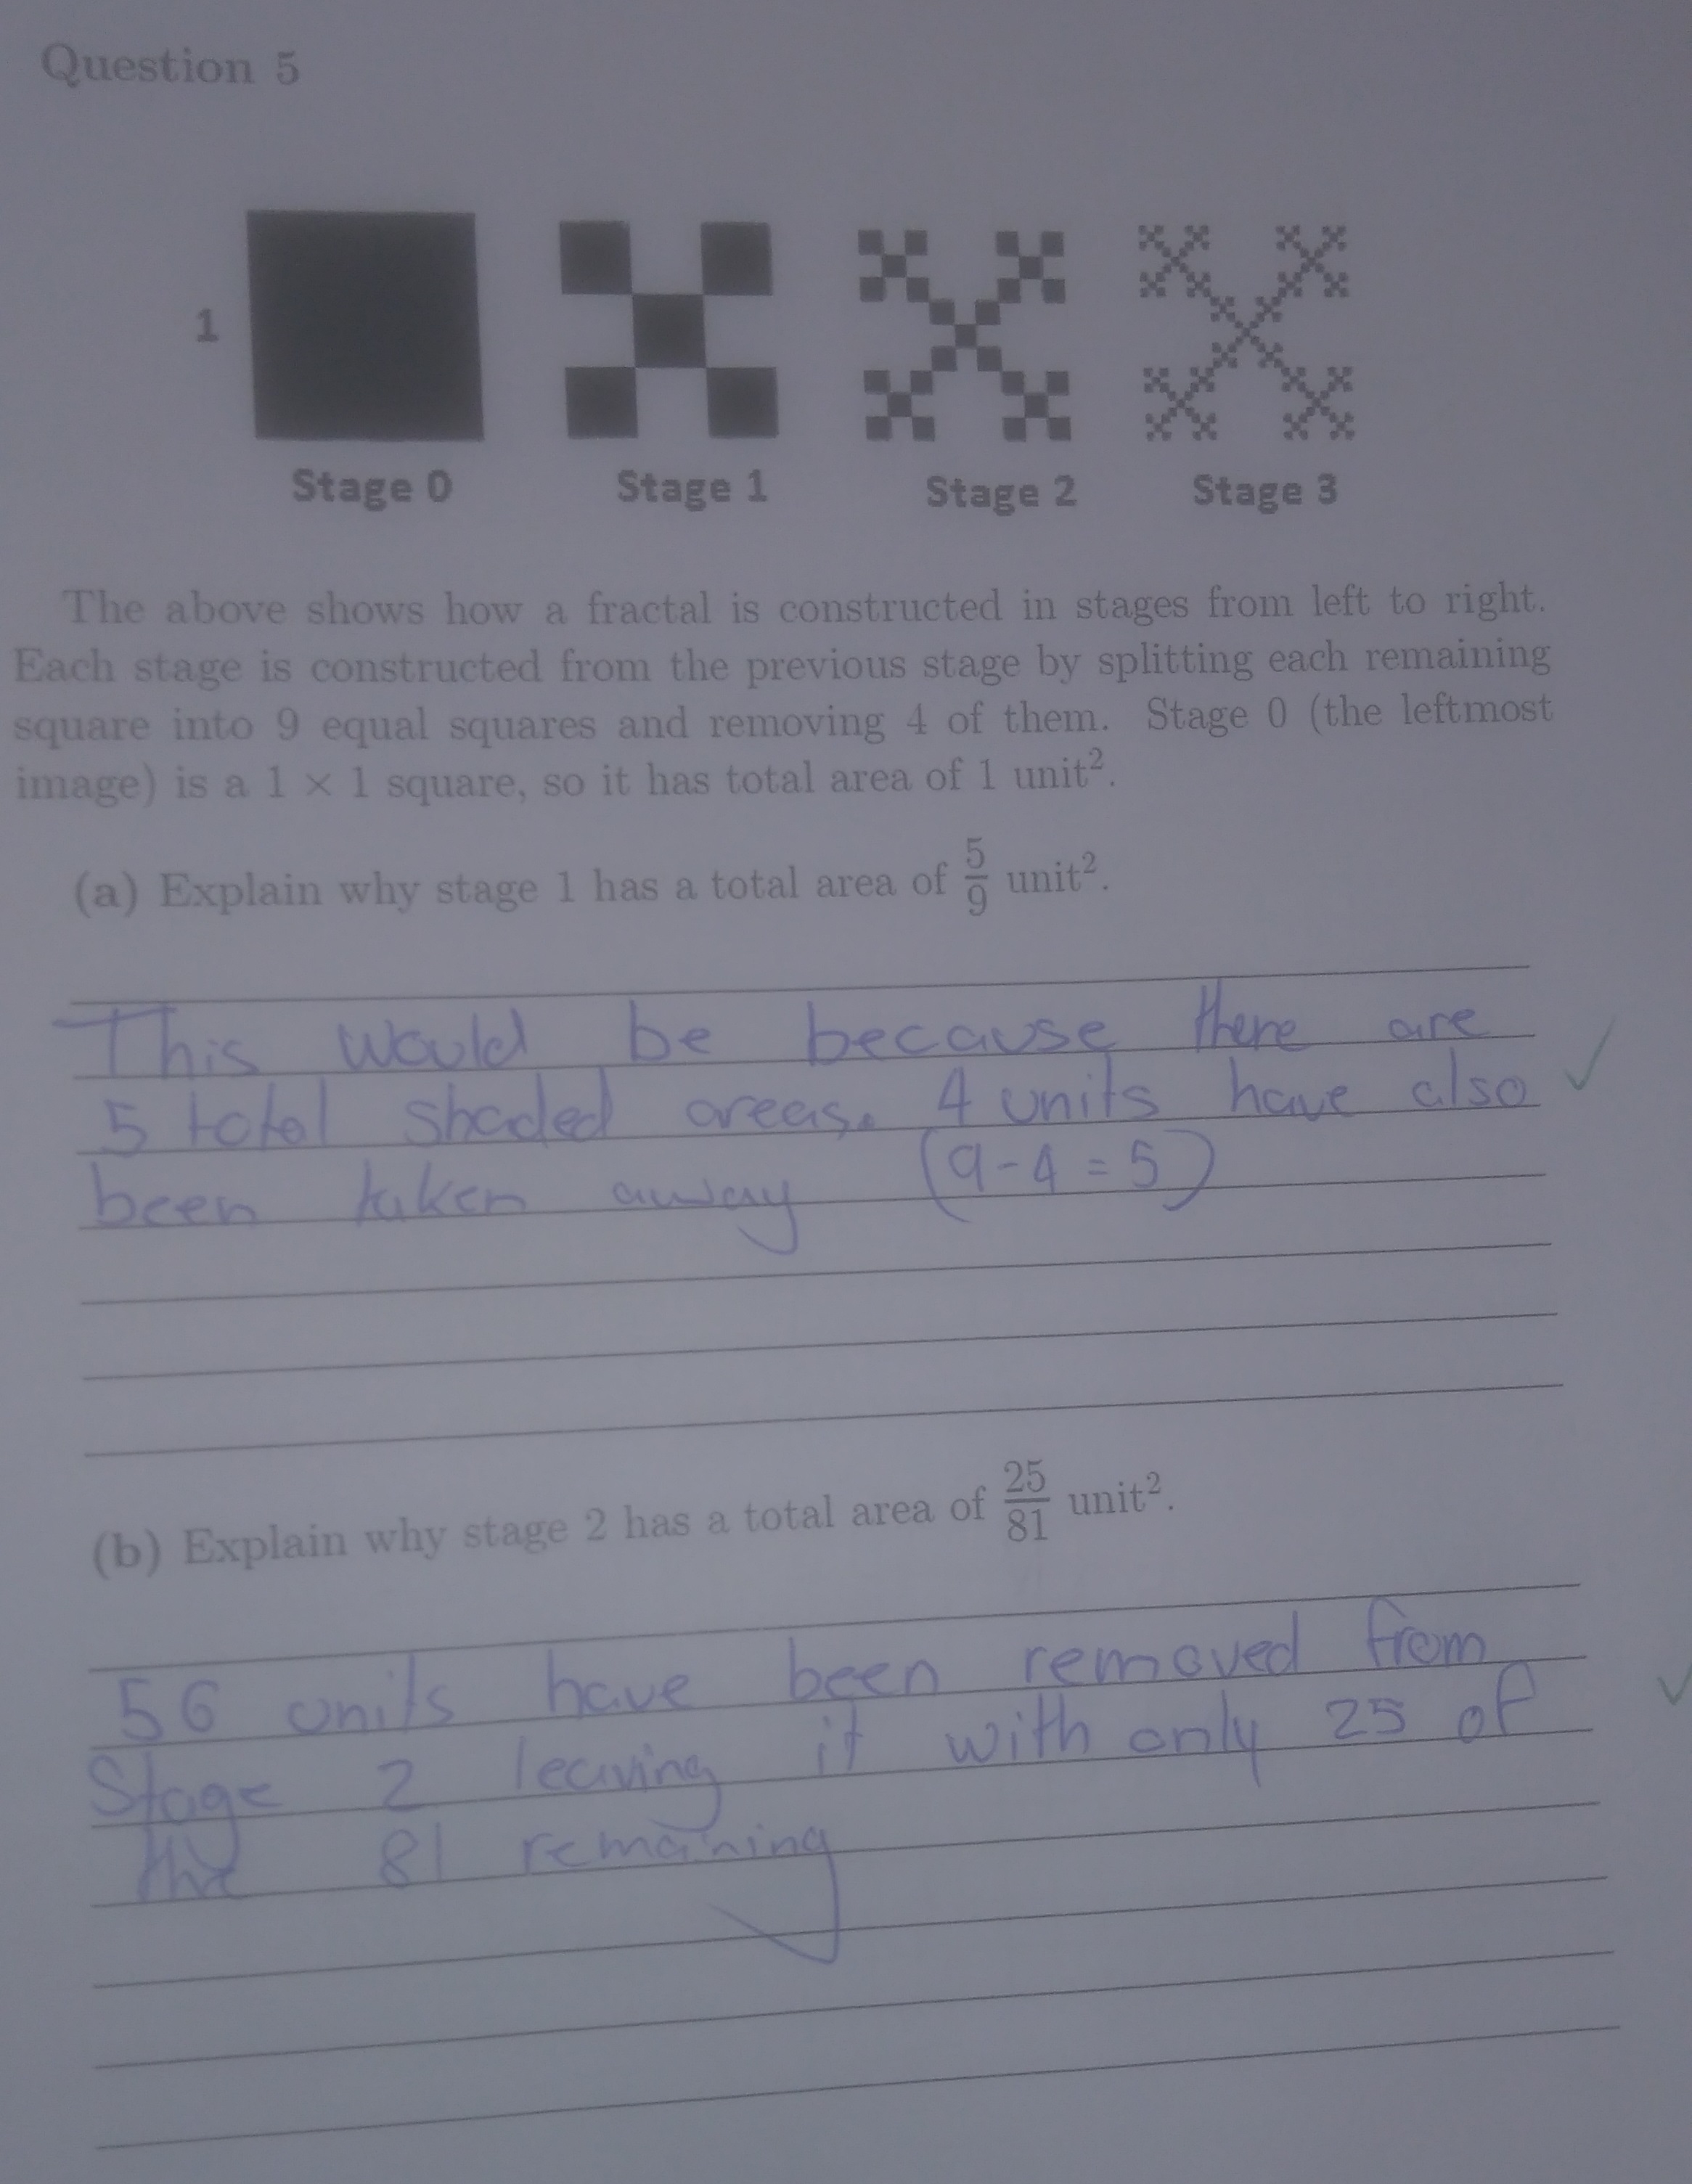 Question 5
1
Stage 0 Stage 1 Stage 2 Stage 3
The above shows how a fractal is constructed in stages from left to right.
Each stage is constructed from the previous stage by splitting each remaining
square into 9 equal squares and removing 4 of them. Stage 0 (the leftmost
image) is a 1 × 1 square, so it has total area of 1 unit².
(a) Explain why stage 1 has a total area of 5/9 unit².
This would be because there are
5 total shaded areas. 4 units have also
been taken away (9-4=5)
(b) Explain why stage 2 has a total area of 25/81 unit².
56 units have been removed from
Stage 2 leaving it with only 25 of
the 81 remaining